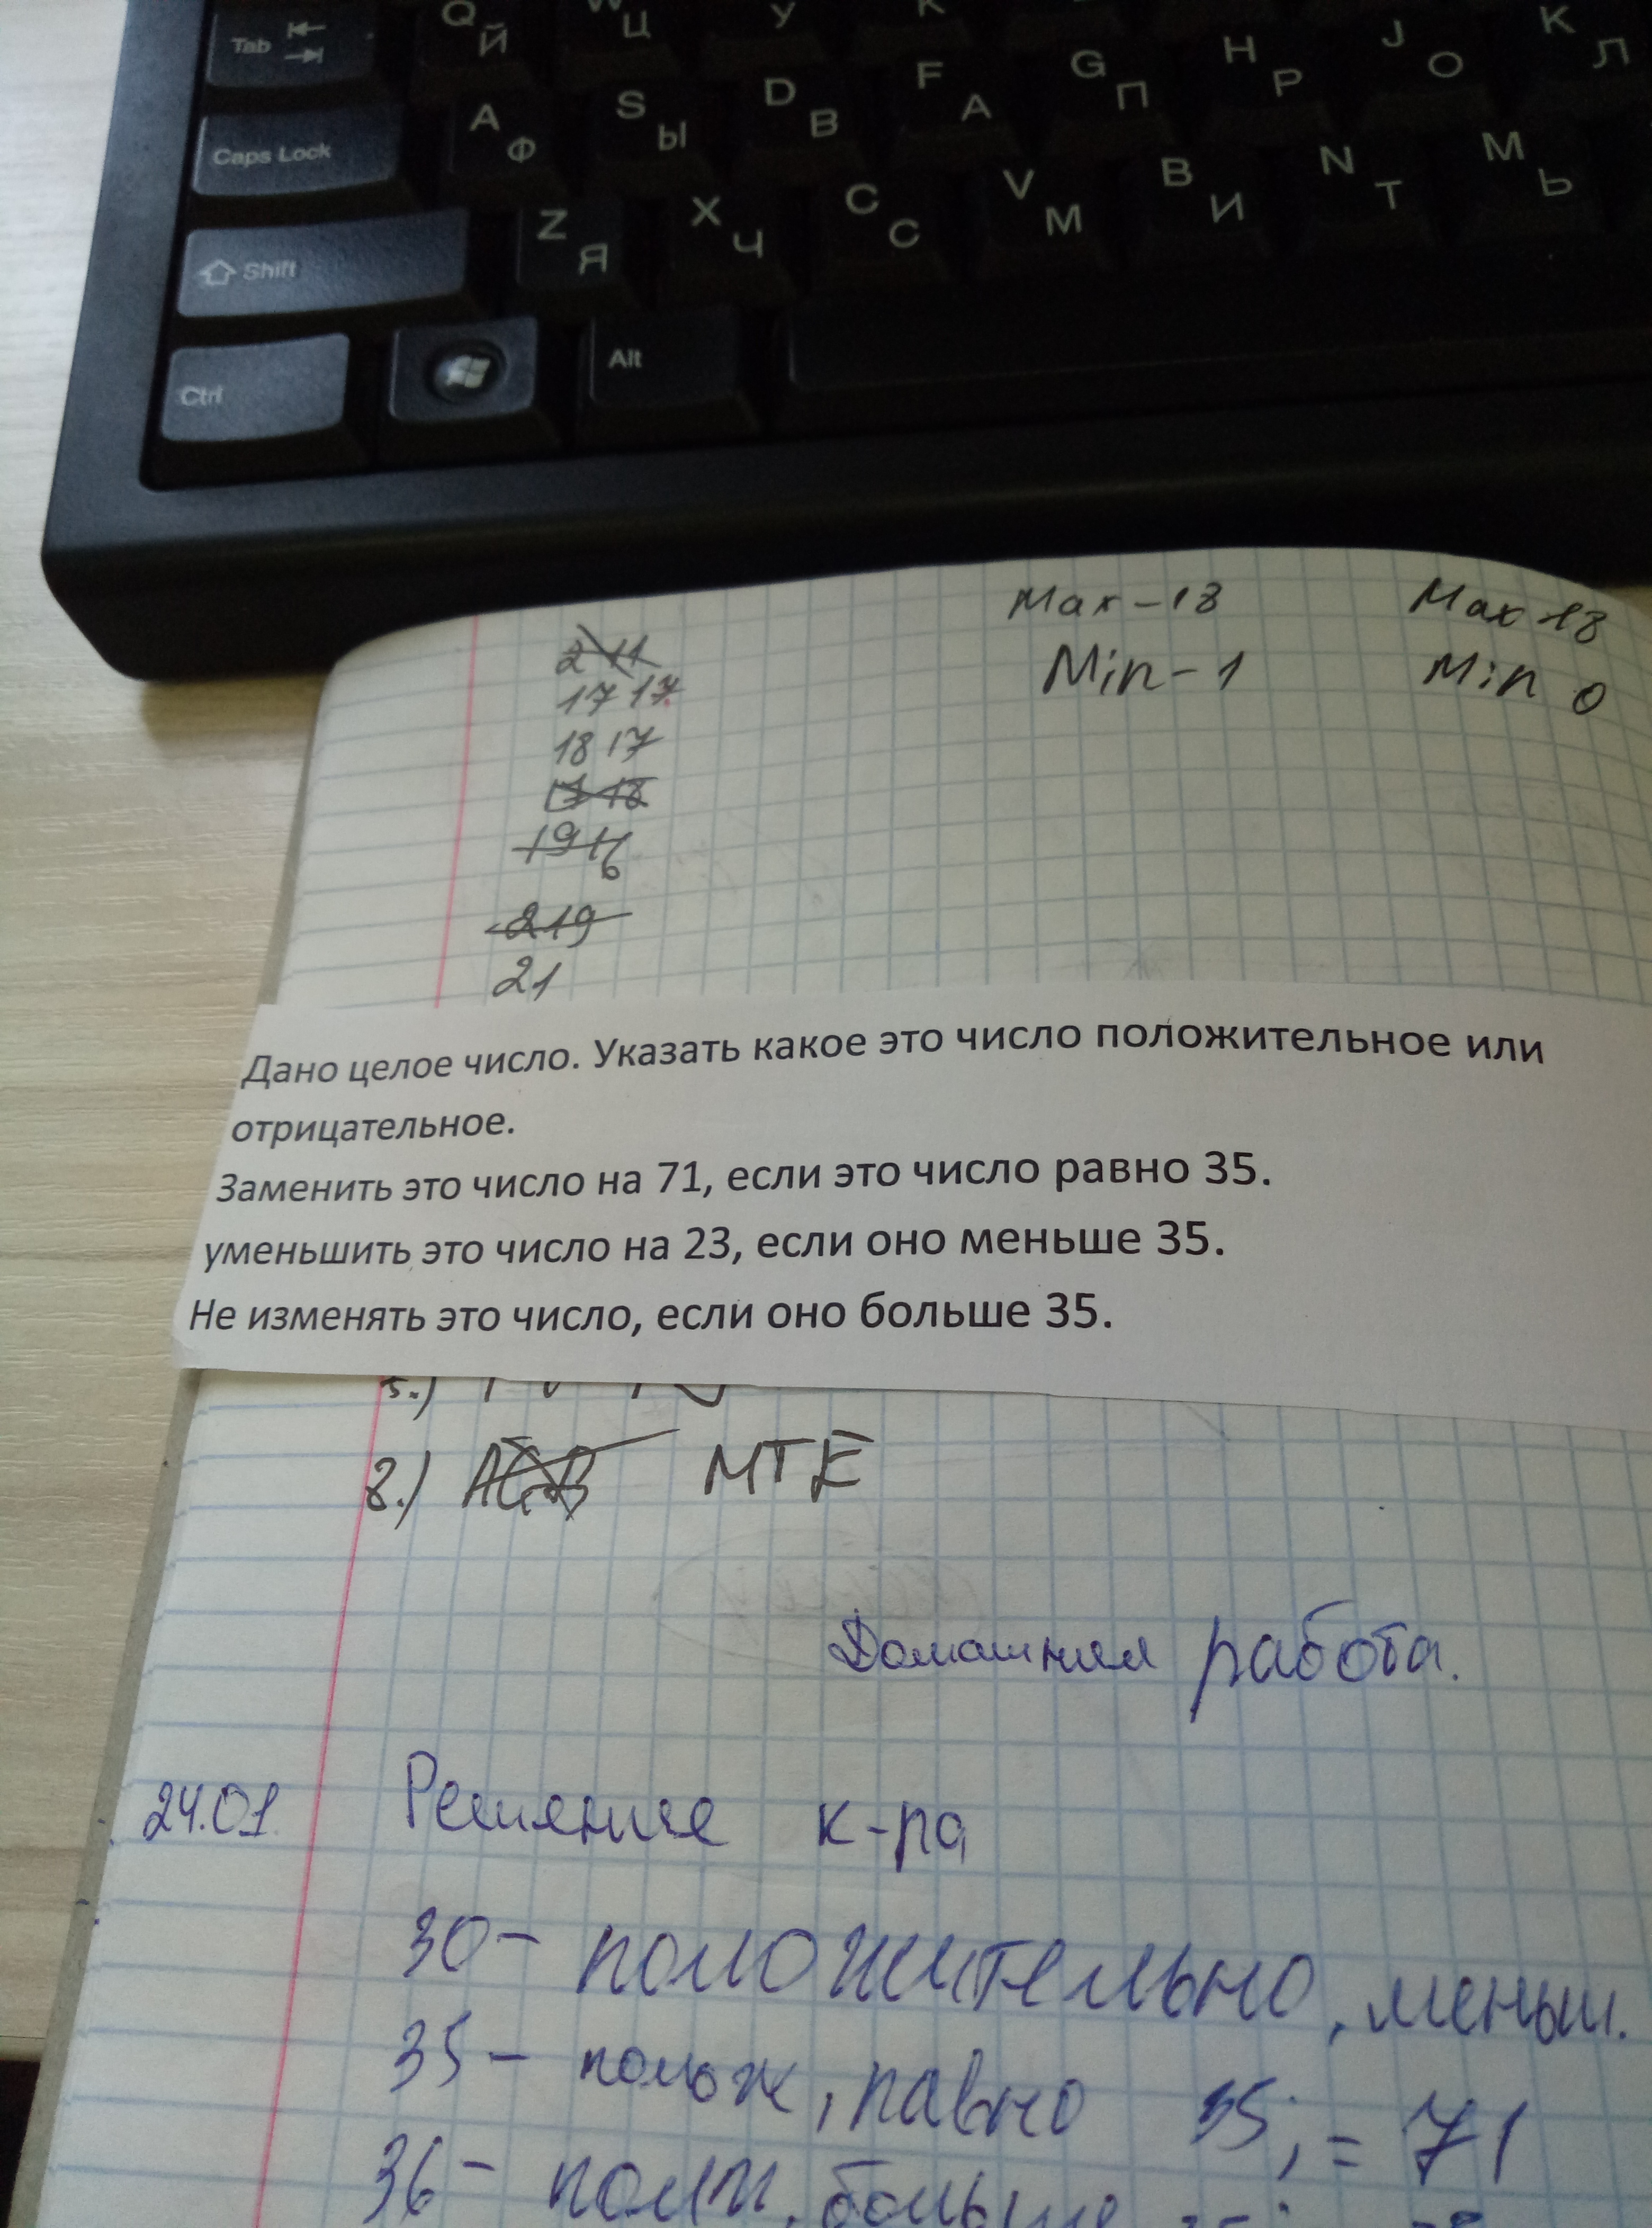 Tab
Q Й
Ц
У
К
Caps Lock
A Ф
S Ы
D В
F А
G П
H Р
J О
K Л
Shift
Z Я
X Ч
C С
V М
B И
N Т
M Ь
Ctrl
Alt
Max - 18
Max 18
Min - 1
Min 0
2 11
17 17
18 17
17 18
19 16
219
21
Дано целое число. Указать какое это число положительное или
отрицательное.
Заменить это число на 71, если это число равно 35.
уменьшить это число на 23, если оно меньше 35.
Не изменять это число, если оно больше 35.
5.)
8.) МТЕ
Домашняя работа.
24.01 Решение к-ра
30 - положительно, меньш.
35 - полож, равно 35, = 71
36 -